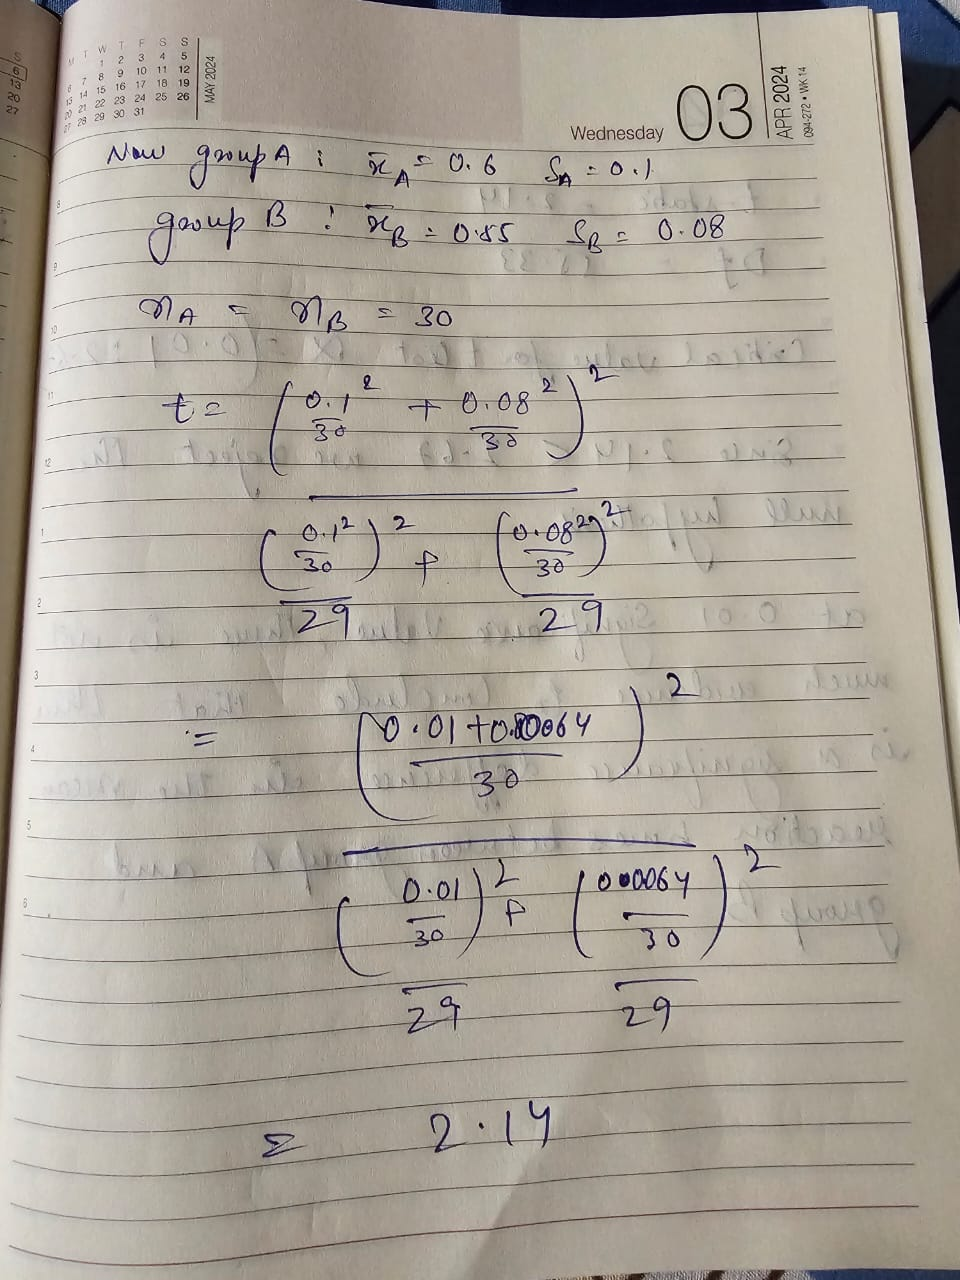 S
6
13
20
27
M T W T F S S
1 2 3 4 5
6 7 8 9 10 11 12
13 14 15 16 17 18 19
20 21 22 23 24 25 26
27 28 29 30 31
MAY 2024
Wednesday 03
APR 2024
094-272 • WK 14
Now group A : x̄_A = 0.6 S_A = 0.1
group B : x̄_B = 0.55 S_B = 0.08
n_A = n_B = 30
t = ( 0.1² / 30 + 0.08² / 30 )²
( 0.1² / 30 )² / 29 + ( 0.08² / 30 )² / 29
= ( 0.01 + 0.0064 / 30 )²
( 0.01 / 30 )² / 29 + ( 0.0064 / 30 )² / 29
= 2.14
8
9
10
11
12
1
2
3
4
5
6